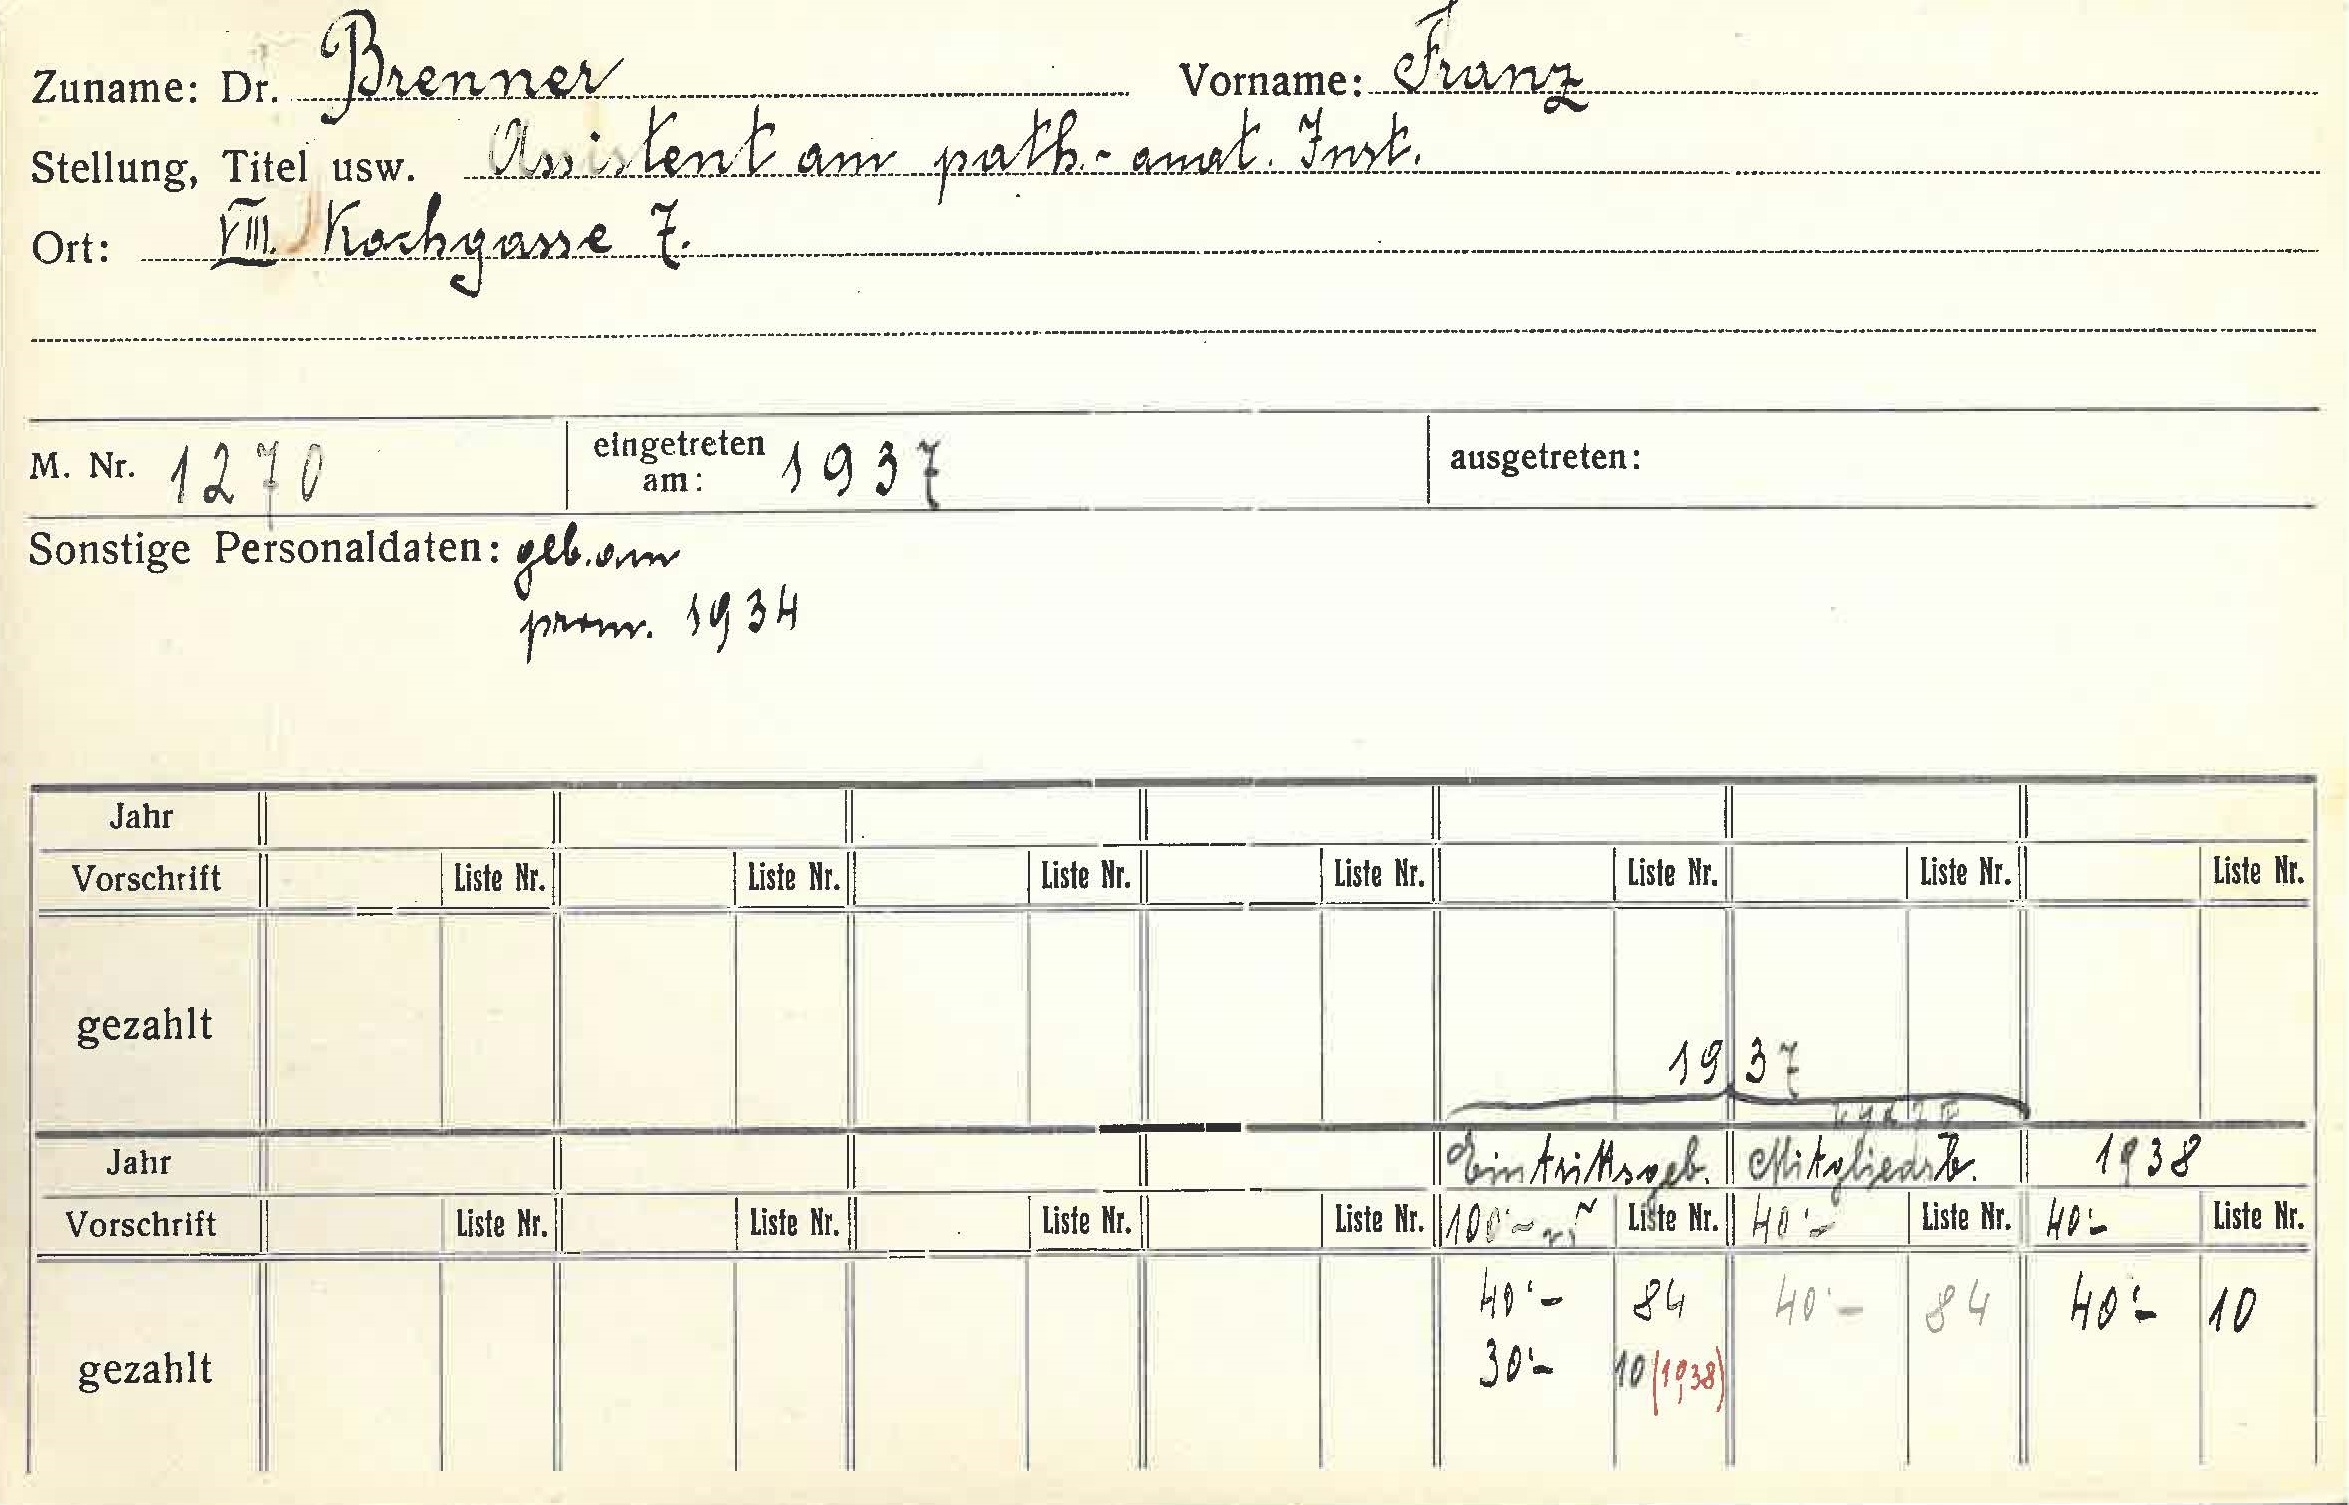 Zuname: Dr. Brenner Vorname: Franz
Stellung, Titel usw. Assistent am path.-anat. Inst.
Ort: VIII. Kochgasse 7.
M. Nr. 1270 eingetreten am: 1937 ausgetreten:
Sonstige Personaldaten: geb. am
prom. 1934
Jahr
Vorschrift Liste Nr. Liste Nr. Liste Nr. Liste Nr. Liste Nr. Liste Nr. Liste Nr.
gezahlt
1937
Jahr Eintrittsgeb. Mitgliedsb. 1938
Vorschrift Liste Nr. Liste Nr. Liste Nr. Liste Nr. 100'- Liste Nr. 40'- Liste Nr. 40'- Liste Nr.
40'- 84 40'- 84 40'- 10
gezahlt 30'- 10 (1938)